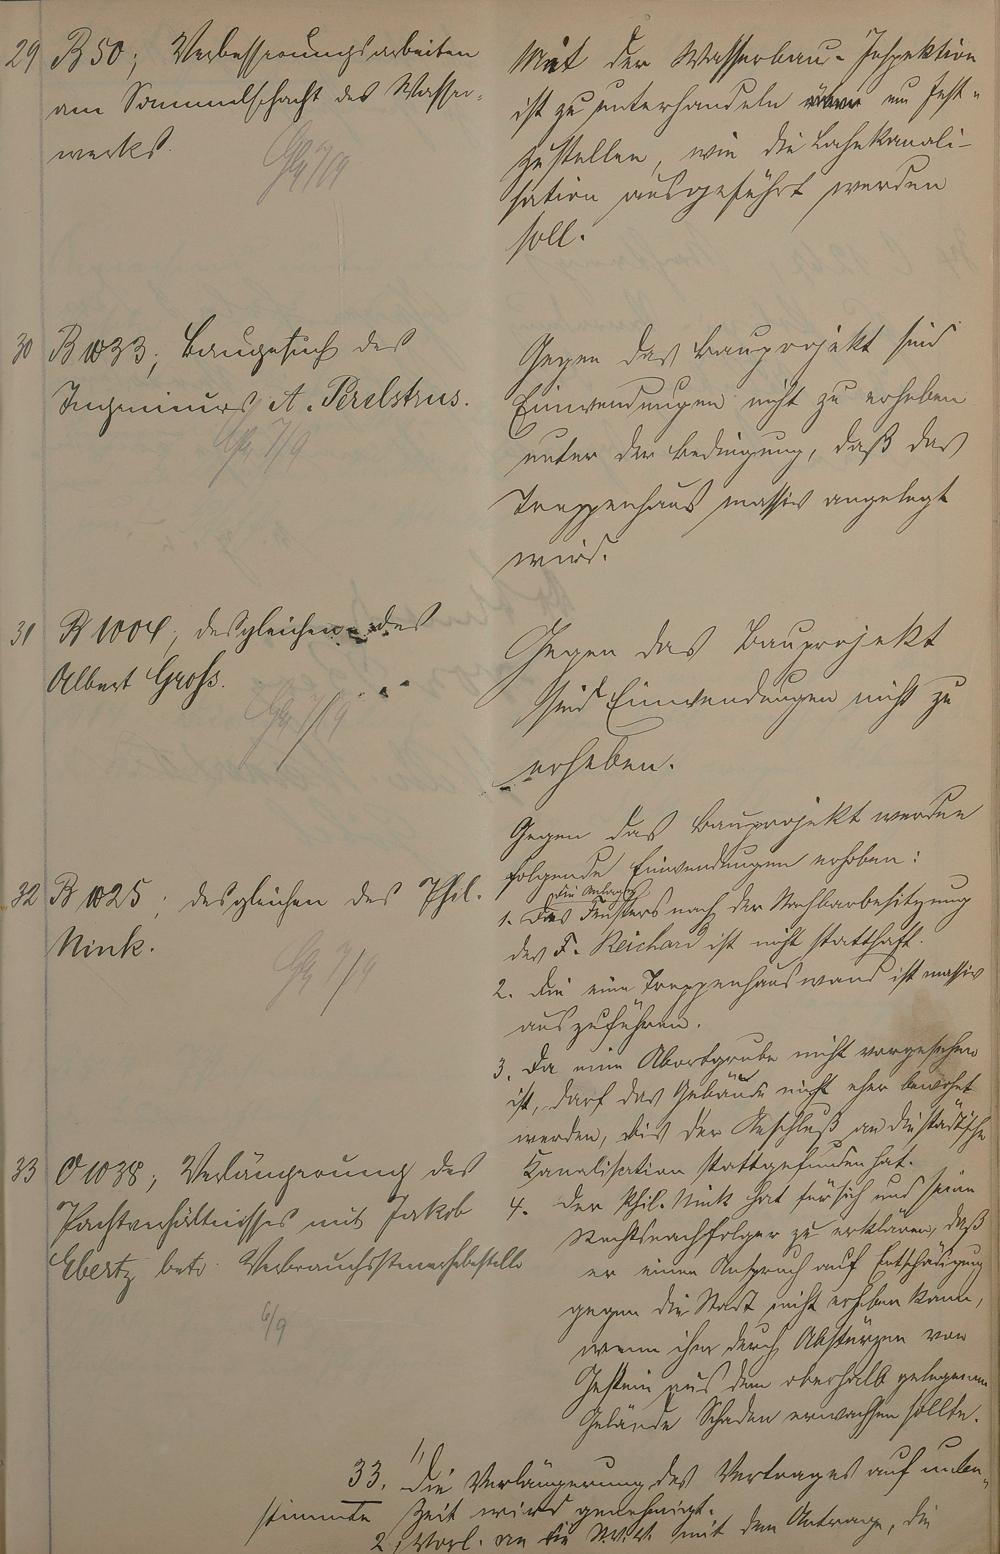 29 B 50; Verbesserungsarbeiten
am Sammelschacht des Wasser-
werks.
7/9
Mit der Wasserbau-Inspektion
ist zu unterhandeln um fest-
zustellen, wie die Lahnkanali-
sation ausgeführt werden
soll.
30 B 1033; Baugesuch des
Ingenieurs A. Perelstrus.
7/9
Gegen das Bauprojekt sind
Einwendungen nicht zu erheben
unter der Bedingung, daß das
Treppenhaus massiv angelegt
wird.
31 B 1004, desgleichen des
Albert Groß.
7/9
Gegen das Bauprojekt
sind Einwendungen nicht zu
erheben.
32 B 1025; desgleichen des Phil.
Nink.
7/9
Gegen das Bauprojekt werden
folgende Einwendungen erhoben:
die Anlage
1. Des Fensters nach der Nachbarbesitzung
des F. Reichard ist nicht statthaft.
2. Die eine Treppenhauswand ist massiv
auszuführen.
3. Da eine Abortgrube nicht vorgesehen
ist, darf das Gebäude nicht eher bewohnt
werden, bis der Anschluß an die städtische
Kanalisation stattgefunden hat.
4. Der Phil. Nink hat für sich und seine
Rechtsnachfolger zu erklären, daß
er einen Anspruch auf Entschädigung
gegen die Stadt nicht erheben kann,
wenn ihm durch Abstürzen von
Gestein aus dem oberhalb gelegenen
Gelände Schaden erwachsen sollte.
33 O 1038; Verlängerung des
Pachtverhältnisses mit Jakob
Ebertz betr. Verbrauchssteuerhebestelle
6/9
33. 1, Die Verlängerung des Vertrages auf unbe-
stimmte Zeit wird genehmigt.
2, Vorl. an die mit dem Antrage, die